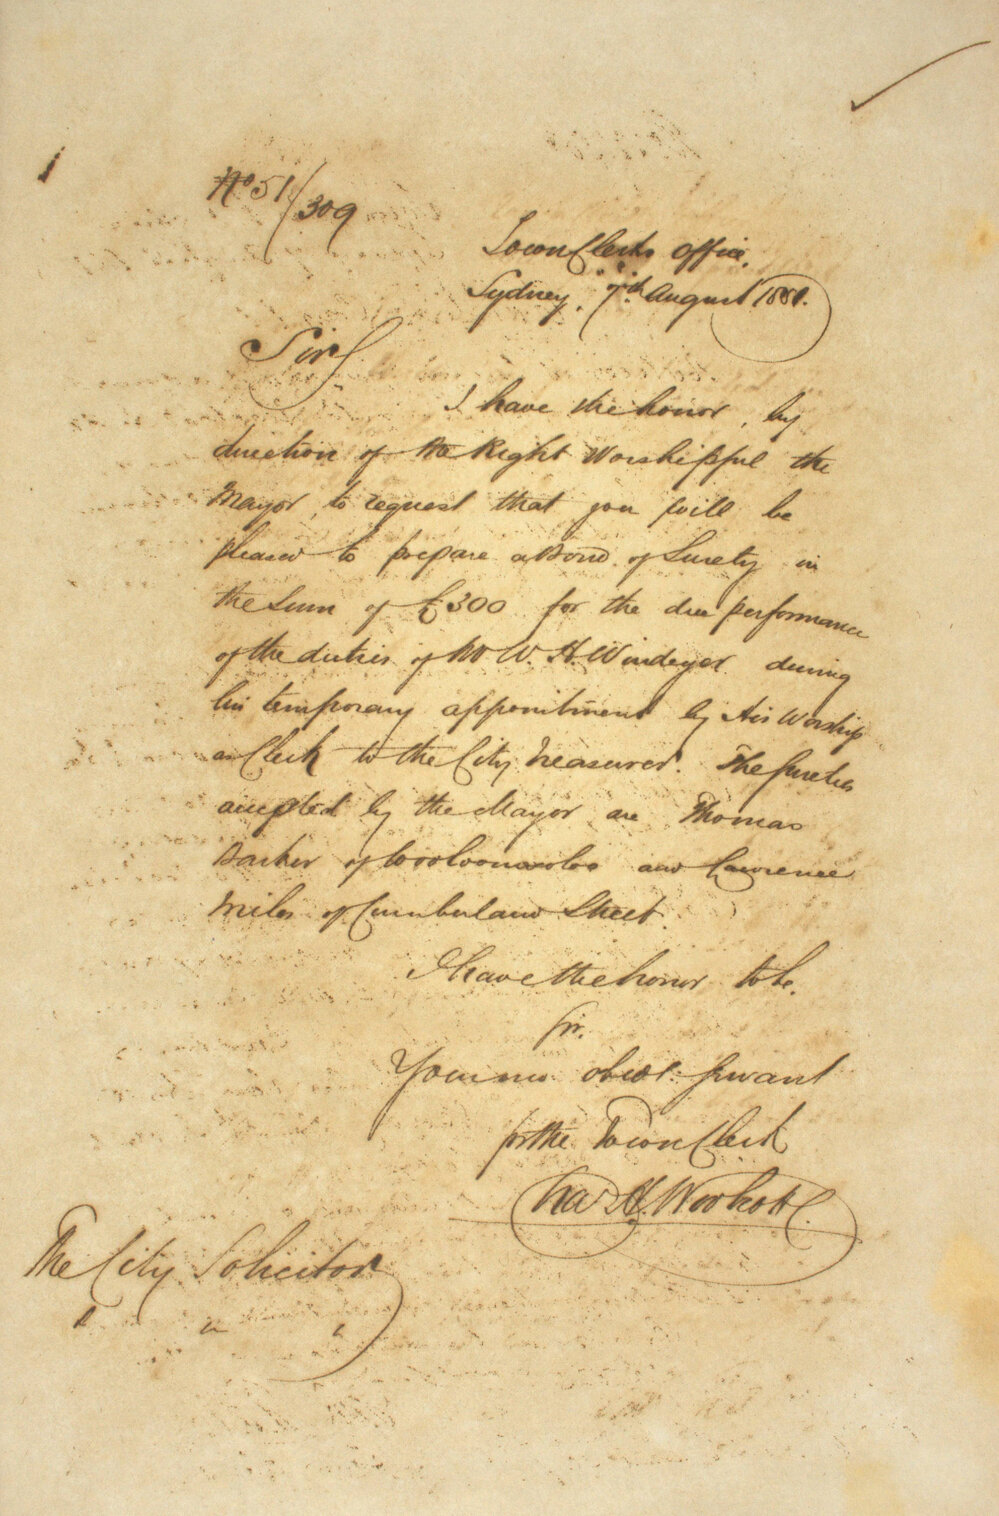 No 51/309
Town Clerks Office,
Sydney, 7th August 1851.
Sir
I have the honor, by
direction of the Right Worshipful the
Mayor, to request that you will be
pleased to prepare a Bond of Surety in
the Sum of £300 for the due performance
of the duties of Mr W. H. Windeyer during
his temporary appointment by His Worship
as Clerk to the City Treasurer. The Sureties
accepted by the Mayor are Thomas
Barker of Woolloomooloo and Lawrence
Miles of Cumberland Street.
I have the honor to be.
Sir.
Your mo obedt. Servant
for the Town Clerk
Chas H. Woolcott
The City Solicitor
" " "